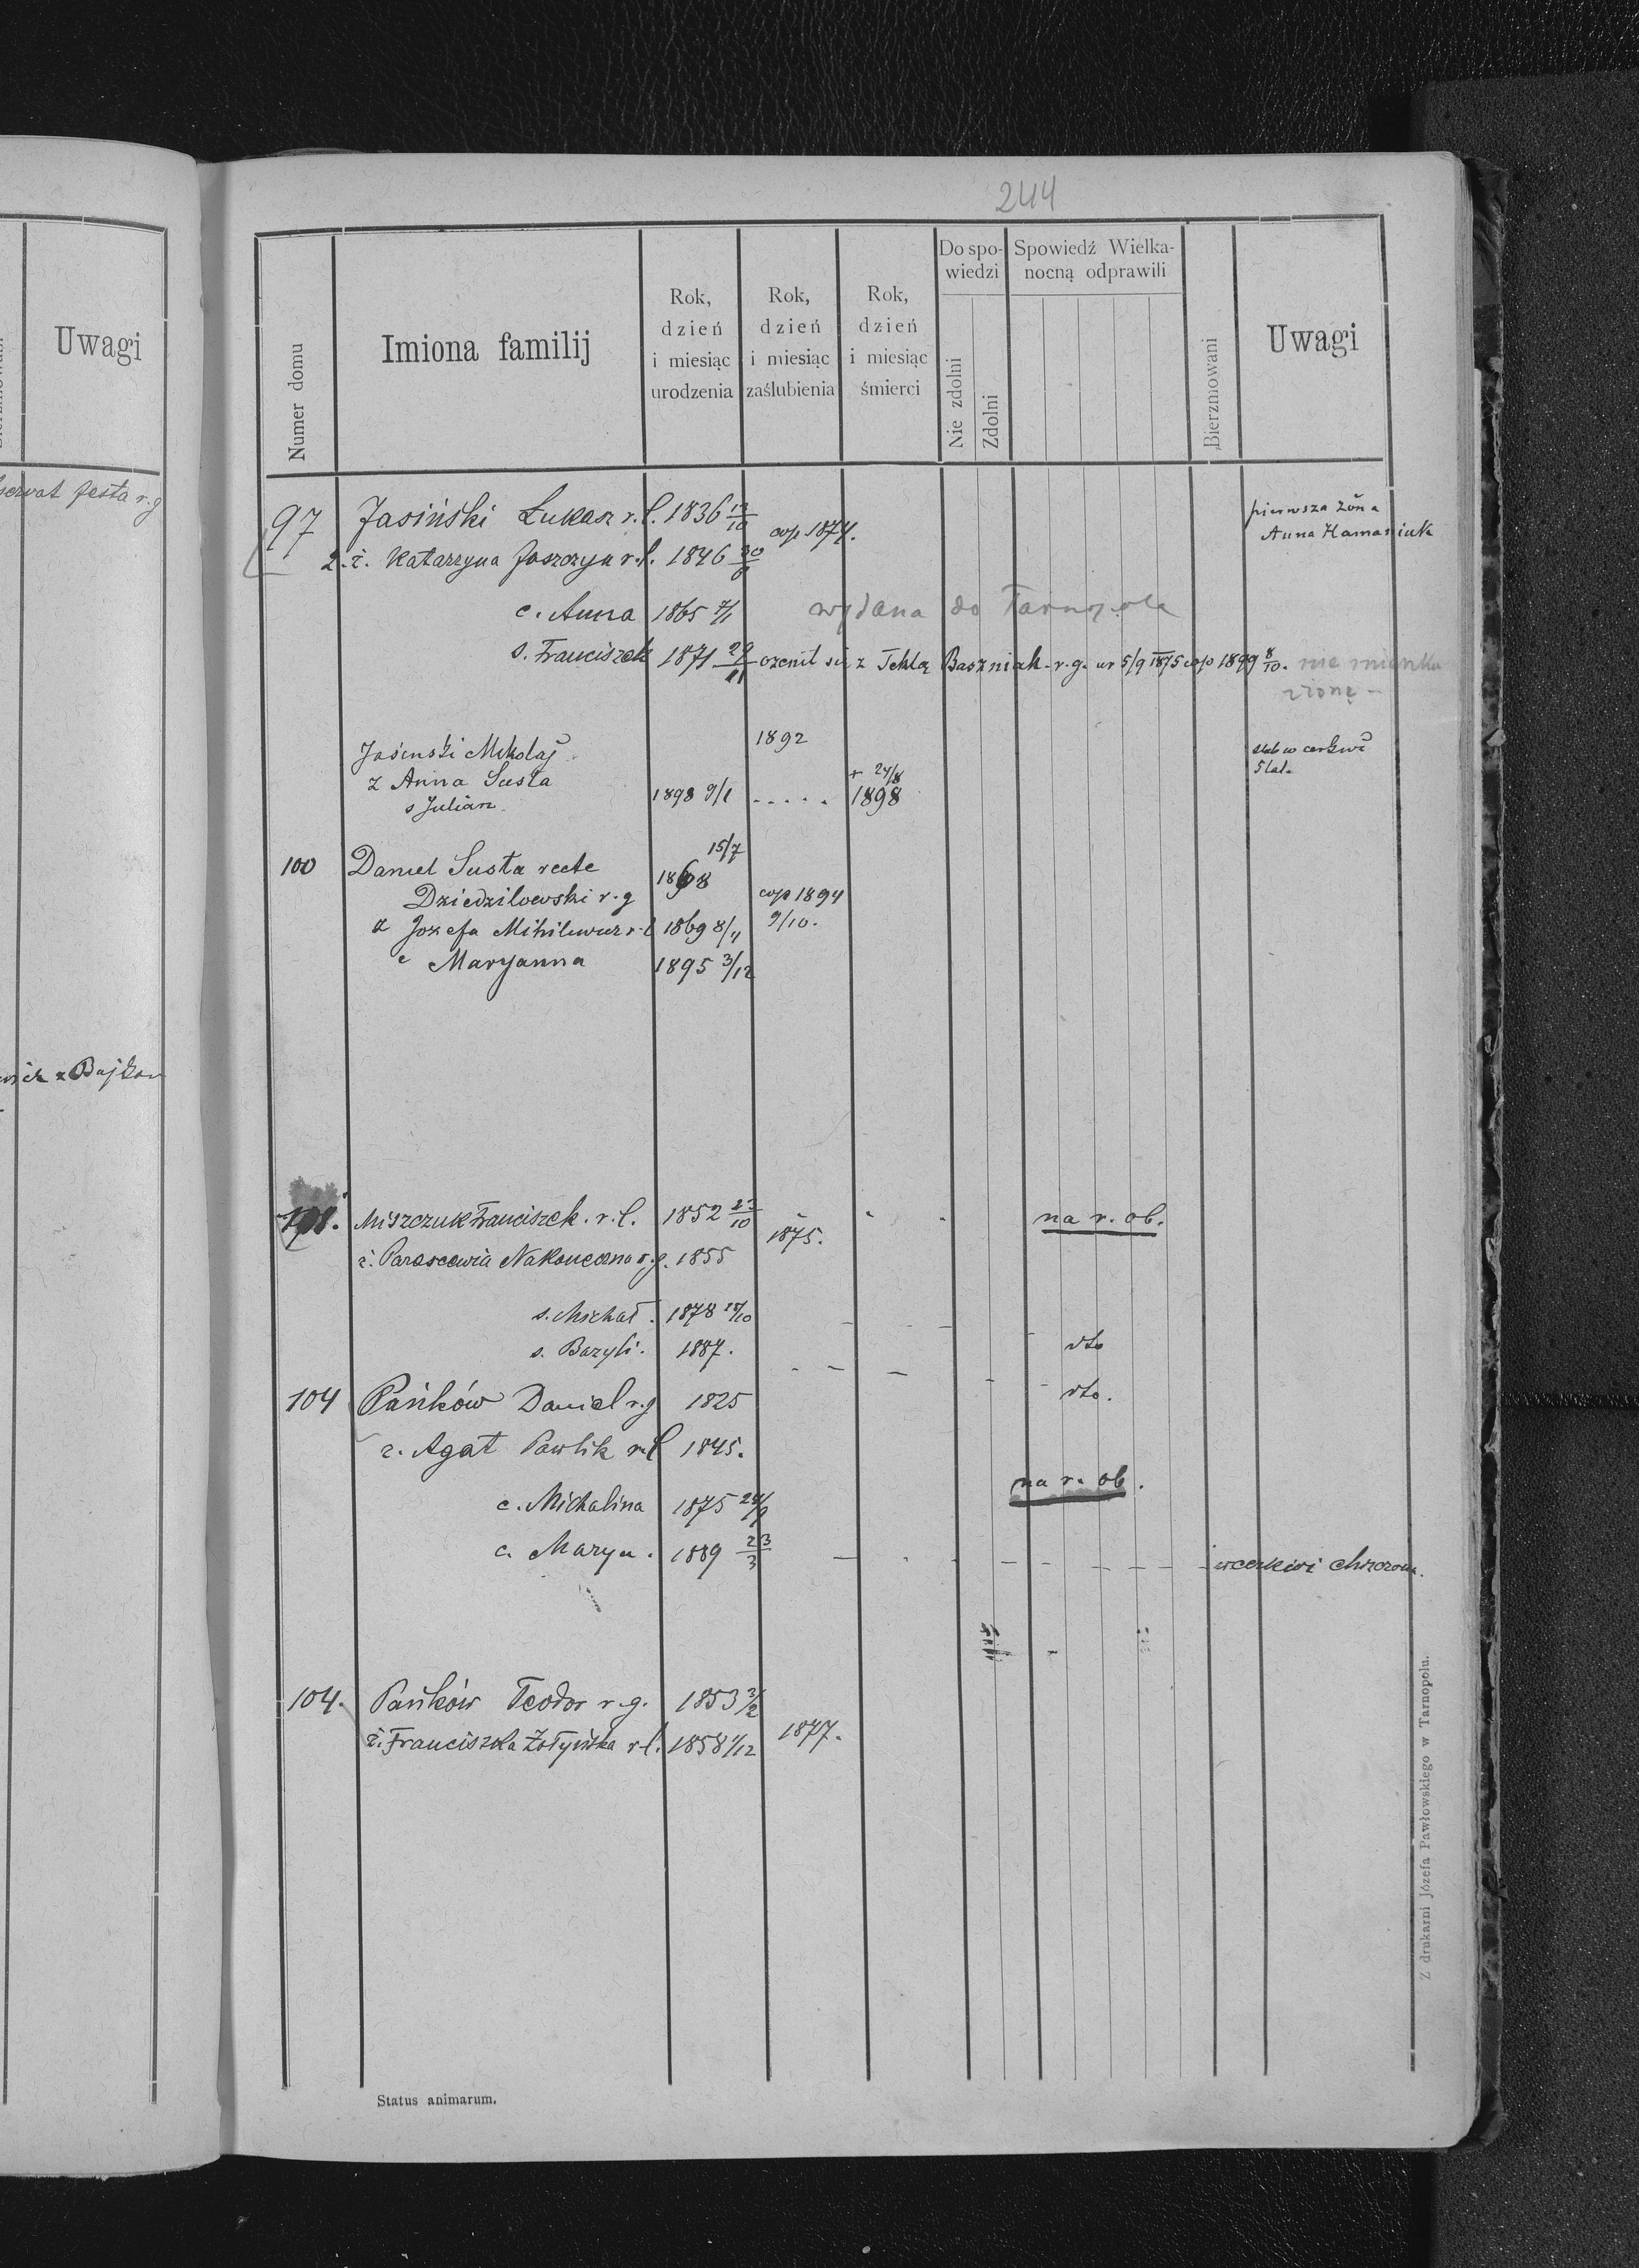 244
Uwagi
servat festa r.g
Numer domu
Imiona familij
Rok,
dzień
i miesiąc
urodzenia
Rok,
dzień
i miesiąc
zaślubienia
Rok,
dzień
i miesiąc
śmierci
Do spo-
wiedzi
Nie zdolni
Zdolni
Spowiedź Wielka-
nocną odprawili
Bierzmowani
Uwagi
97 Jasiński Łukasz r.l. 1836 12/10 cop 1874. pierwsza żona
2. ż. Katarzyna r.l. 1846 Anna Hamaniuk
c. Anna 1865 wydana do Tarnopola
s. Franciszek 1871 29/11 ozenił się z Teklą Baszniak r.g. ur 5/9 1875 cop 1899 8/10. nie
Jasinski Mikolaj 1892 w cerkwi
z Anna Susta 5 lat.
s Julian 1898 9/1 . . . . . + 24/8 1898
100 Daniel Susta recte 15/7
Dziedzilowski r.g cop 1894
z Jozefa r.l 1869 8/11 9/10.
c Maryanna 1895 3/12
z Bajkow
Miszczuk Franciszek. r.l. 1852 23/10 1875. na r. ob.
ż. Parascewia r.g. 1855
s. Michał. 1878
s. Bazyli. 1887. dto
104 Pańków Daniel r.g 1825 dto.
ż. Agat Pawlik r.l 1845.
c. Michalina 1875 24/9 na r. ob.
c. Marya. 1889 23/3 w cerkwi chrzczona.
104. Pańków Teodor r.g. 1853 3/2
ż. Franciszka Żołyńska r.l. 1858 1/12 1877.
Status animarum.
Z drukarni Józefa Pawłowskiego w Tarnopolu.